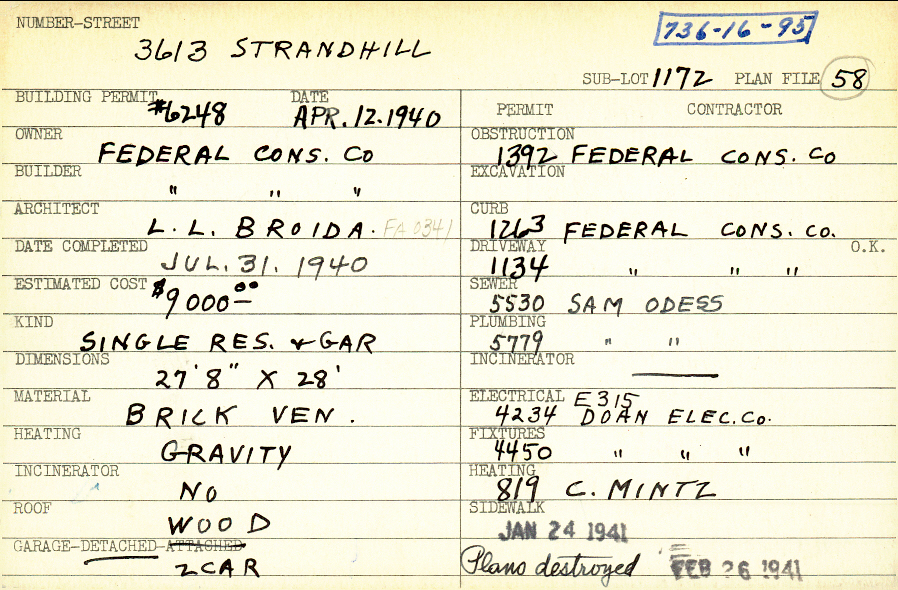 NUMBER-STREET
3613 STRANDHILL
736-16-95
SUB-LOT 1172 PLAN FILE 58
BUILDING PERMIT #6248 DATE APR. 12. 1940
OWNER FEDERAL CONS. CO
BUILDER " " "
ARCHITECT L. L. BROIDA. FA 0341
DATE COMPLETED JUL. 31. 1940
ESTIMATED COST $9000.00
KIND SINGLE RES. & GAR
DIMENSIONS 27'8" X 28'
MATERIAL BRICK VEN.
HEATING GRAVITY
INCINERATOR NO
ROOF WOOD
GARAGE-DETACHED-ATTACHED
2 CAR
PERMIT CONTRACTOR
OBSTRUCTION 1392 FEDERAL CONS. CO
EXCAVATION
CURB 1263 FEDERAL CONS. CO.
DRIVEWAY 1134 " " " O.K.
SEWER 5530 SAM ODESS
PLUMBING 5779 " "
INCINERATOR —
ELECTRICAL E315
4234 DOAN ELEC. CO.
FIXTURES 4450 " " "
HEATING 819 C. MINTZ
SIDEWALK
JAN 24 1941
Plans destroyed FEB 26 1941